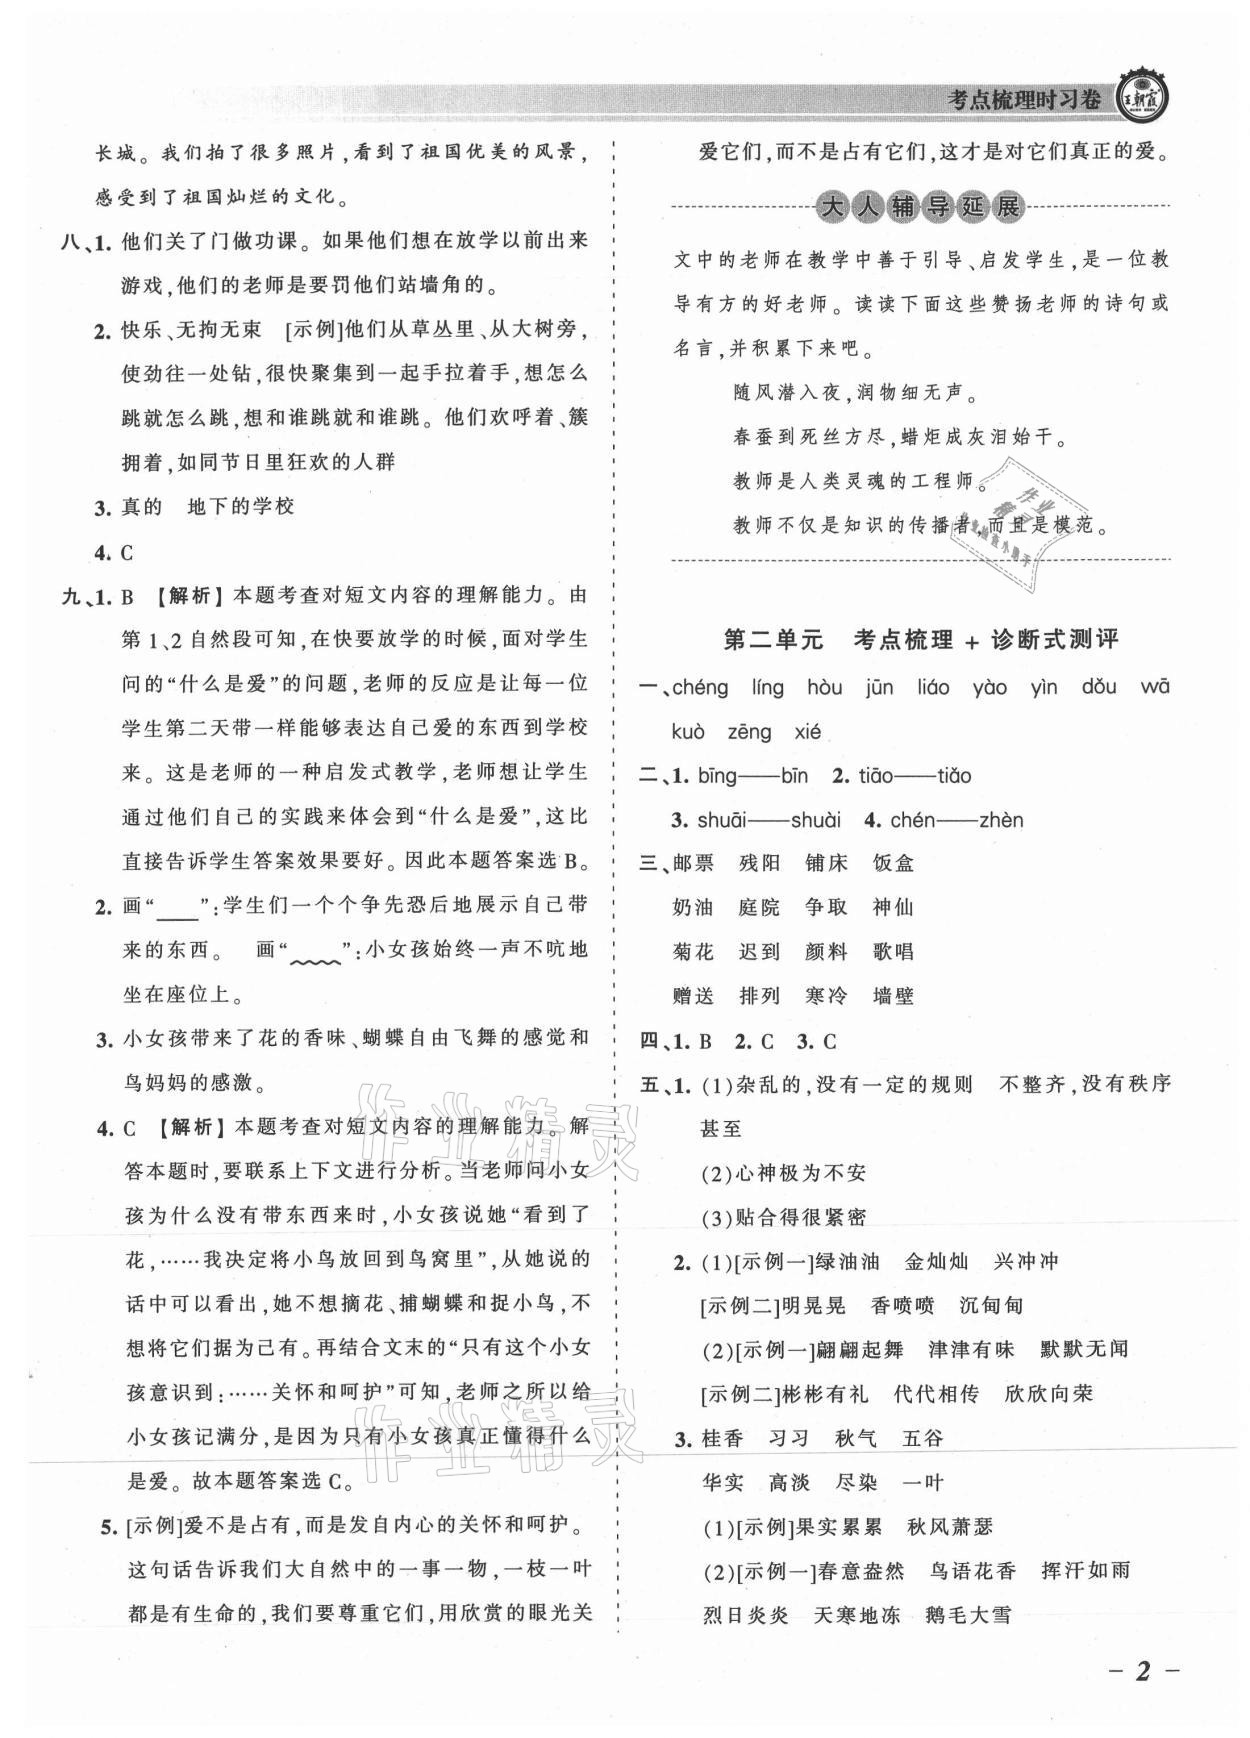 考点梳理时习卷
王朝霞
长城。我们拍了很多照片,看到了祖国优美的风景,
感受到了祖国灿烂的文化。
八、1. 他们关了门做功课。如果他们想在放学以前出来
游戏,他们的老师是要罚他们站墙角的。
2. 快乐、无拘无束 [示例]他们从草丛里、从大树旁,
使劲往一处钻,很快聚集到一起手拉着手,想怎么
跳就怎么跳,想和谁跳就和谁跳。他们欢呼着、簇
拥着,如同节日里狂欢的人群
3. 真的 地下的学校
4. C
九、1. B 【解析】本题考查对短文内容的理解能力。由
第1、2自然段可知,在快要放学的时候,面对学生
问的“什么是爱”的问题,老师的反应是让每一位
学生第二天带一样能够表达自己爱的东西到学校
来。这是老师的一种启发式教学,老师想让学生
通过他们自己的实践来体会到“什么是爱”,这比
直接告诉学生答案效果要好。因此本题答案选B。
2. 画“____”:学生们一个个争先恐后地展示自己带
来的东西。 画“﹏﹏”:小女孩始终一声不吭地
坐在座位上。
3. 小女孩带来了花的香味、蝴蝶自由飞舞的感觉和
鸟妈妈的感激。
4. C 【解析】本题考查对短文内容的理解能力。解
答本题时,要联系上下文进行分析。当老师问小女
孩为什么没有带东西来时,小女孩说她“看到了
花,……我决定将小鸟放回到鸟窝里”,从她说的
话中可以看出,她不想摘花、捕蝴蝶和捉小鸟,不
想将它们据为己有。再结合文末的“只有这个小女
孩意识到:……关怀和呵护”可知,老师之所以给
小女孩记满分,是因为只有小女孩真正懂得什么
是爱。故本题答案选C。
5. [示例]爱不是占有,而是发自内心的关怀和呵护。
这句话告诉我们大自然中的一事一物,一枝一叶
都是有生命的,我们要尊重它们,用欣赏的眼光关
爱它们,而不是占有它们,这才是对它们真正的爱。
大人辅导延展
文中的老师在教学中善于引导、启发学生,是一位教
导有方的好老师。读读下面这些赞扬老师的诗句或
名言,并积累下来吧。
随风潜入夜,润物细无声。
春蚕到死丝方尽,蜡炬成灰泪始干。
教师是人类灵魂的工程师。
教师不仅是知识的传播者,而且是模范。
第二单元 考点梳理 + 诊断式测评
一、chéng líng hòu jūn liáo yào yìn dǒu wā
kuò zēng xié
二、1. bīng——bīn 2. tiāo——tiǎo
3. shuāi——shuài 4. chén——zhèn
三、邮票 残阳 铺床 饭盒
奶油 庭院 争取 神仙
菊花 迟到 颜料 歌唱
赠送 排列 寒冷 墙壁
四、1. B 2. C 3. C
五、1. (1)杂乱的,没有一定的规则 不整齐,没有秩序
甚至
(2)心神极为不安
(3)贴合得很紧密
2. (1)[示例一]绿油油 金灿灿 兴冲冲
[示例二]明晃晃 香喷喷 沉甸甸
(2)[示例一]翩翩起舞 津津有味 默默无闻
[示例二]彬彬有礼 代代相传 欣欣向荣
3. 桂香 习习 秋气 五谷
华实 高淡 尽染 一叶
(1)[示例]果实累累 秋风萧瑟
(2)[示例一]春意盎然 鸟语花香 挥汗如雨
烈日炎炎 天寒地冻 鹅毛大雪
作业精灵
作业精灵
作业
精灵
– 2 –